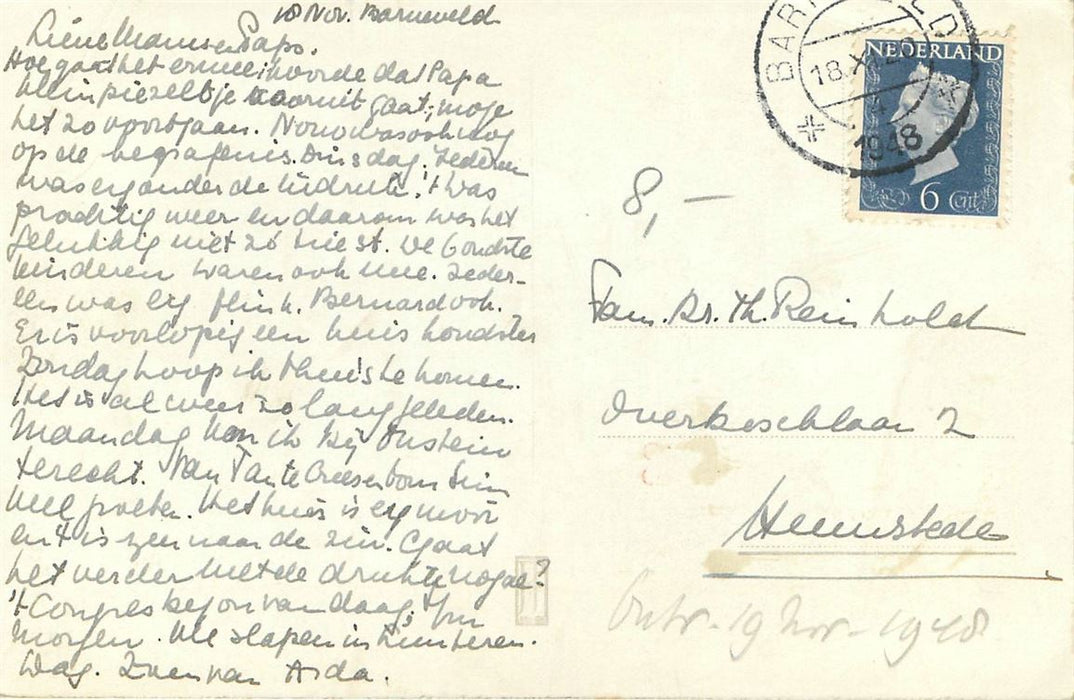 18 Nov. Barneveld
Lieve Mams en Paps.
Hoe gaat het ermee; hoorde dat Papa
klein piezeltje vooruit gaat; moge
het zo voortgaan. was ook nog
op de begrafenis. Dinsdag. Iedereen
was erg onder de indruk. 't was
prachtig weer en daarom was het
gelukkig niet zó triest. De Goudste
kinderen waren ook mee. Ieder-
een was erg flink. Bernard ook.
Er is voorlopig een huishoudster
Zondag hoop ik thuis te komen.
Het is al weer zo lang geleden.
Maandag kan ik bij
terecht. Van Tante Cree en oom Sim
veel groeten. Het huis is erg mooi
en 't is zeer naar de zin. Gaat
het verder met de drukte nogal?
't Congres begon vandaag; t/m
morgen. We slapen in Lunteren.
Dag. Zoen van Asda.
BARNEVELD
18.XI.48
1948
NEDERLAND
6 Cent
8,-
Fam. Dr. Th. Reinholdt
Overboschlaan 2
Heemstede
Ontv. 19 Nov. 1948